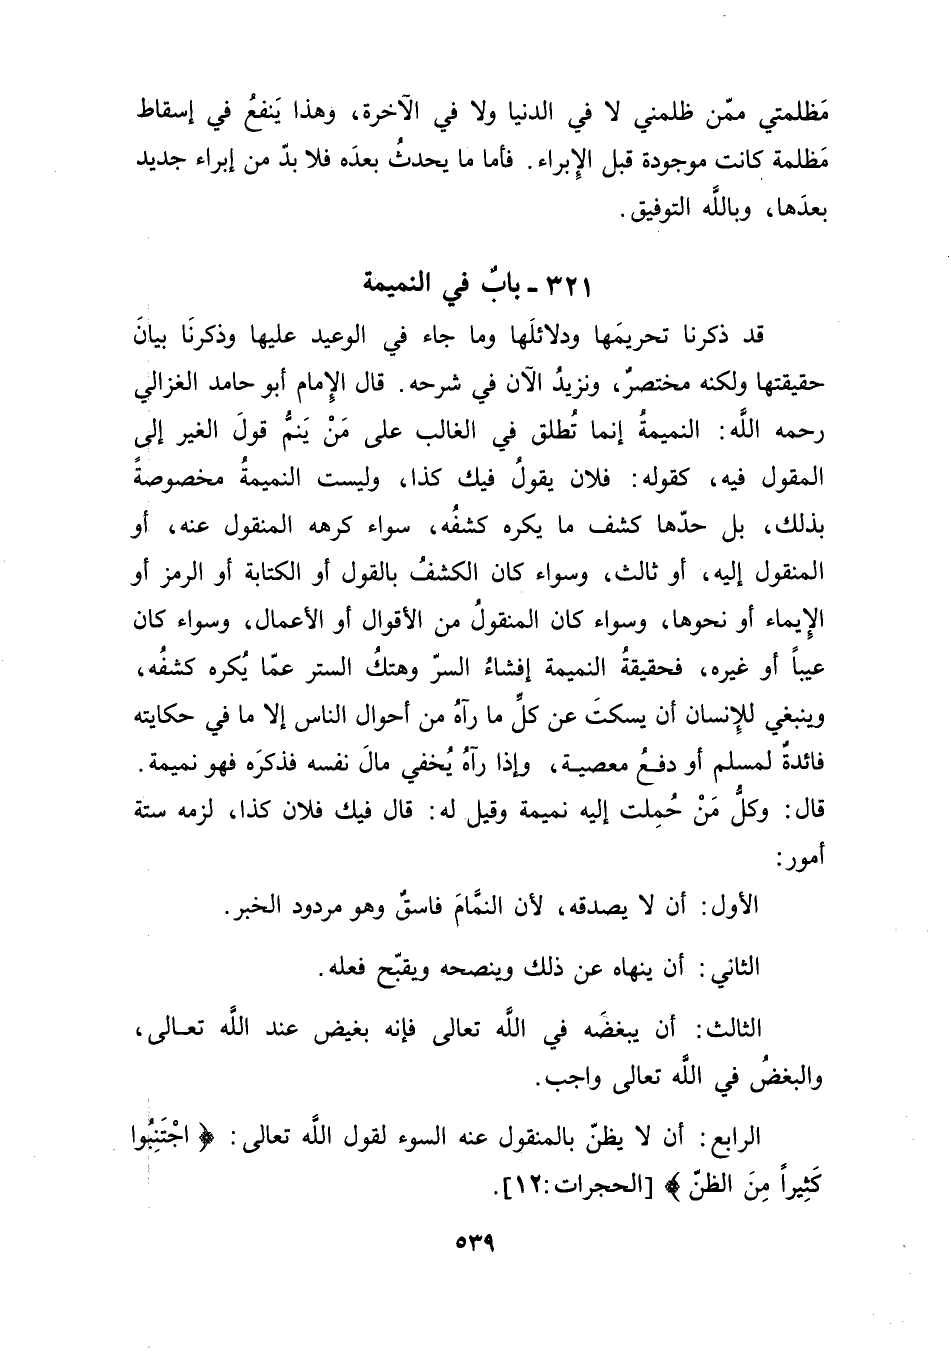 مَظلمتي ممّن ظلمني لا في الدنيا ولا في الآخرة، وهذا يَنفعُ في إسقاط
مَظلمة كانت موجودة قبل الإِبراء. فأما ما يحدثُ بعدَه فلا بدّ من إبراء جديد
بعدَها، وباللَّه التوفيق.
٣٢١ - بابٌ في النميمة
قد ذكرنا تحريمَها ودلائلَها وما جاء في الوعيد عليها وذكرنَا بيانَ
حقيقتها ولكنه مختصرٌ، ونزيدُ الآن في شرحه. قال الإِمام أبو حامد الغزالي
رحمه اللَّه: النميمةُ إنما تُطلق في الغالب على مَنْ يَنمُّ قولَ الغير إلى
المقول فيه، كقوله: فلان يقولُ فيك كذا، وليست النميمةُ مخصوصةً
بذلك، بل حدّها كشف ما يكره كشفُه، سواء كرهه المنقول عنه، أو
المنقول إليه، أو ثالث، وسواء كان الكشفُ بالقول أو الكتابة أو الرمز أو
الإِيماء أو نحوها، وسواء كان المنقولُ من الأقوال أو الأعمال، وسواء كان
عيباً أو غيره، فحقيقةُ النميمة إفشاءُ السرّ وهتكُ الستر عمّا يُكره كشفُه،
وينبغي للإِنسان أن يسكتَ عن كلِّ ما رآهُ من أحوال الناس إلا ما في حكايته
فائدةٌ لمسلم أو دفعُ معصية، وإذا رآهُ يُخفي مالَ نفسه فذكرَه فهو نميمة.
قال: وكلُّ مَنْ حُملت إليه نميمة وقيل له: قال فيك فلان كذا، لزمه ستة
أمور:
الأول: أن لا يصدقه، لأن النمَّامَ فاسقٌ وهو مردود الخبر.
الثاني: أن ينهاه عن ذلك وينصحه ويقبّح فعله.
الثالث: أن يبغضَه في اللَّه تعالى فإنه بغيض عند اللَّه تعالى،
والبغضُ في اللَّه تعالى واجب.
الرابع: أن لا يظنّ بالمنقول عنه السوء لقول اللَّه تعالى: ﴿ اجْتَنِبُوا
كَثِيراً مِنَ الظنّ ﴾ [الحجرات:١٢].
٥٣٩